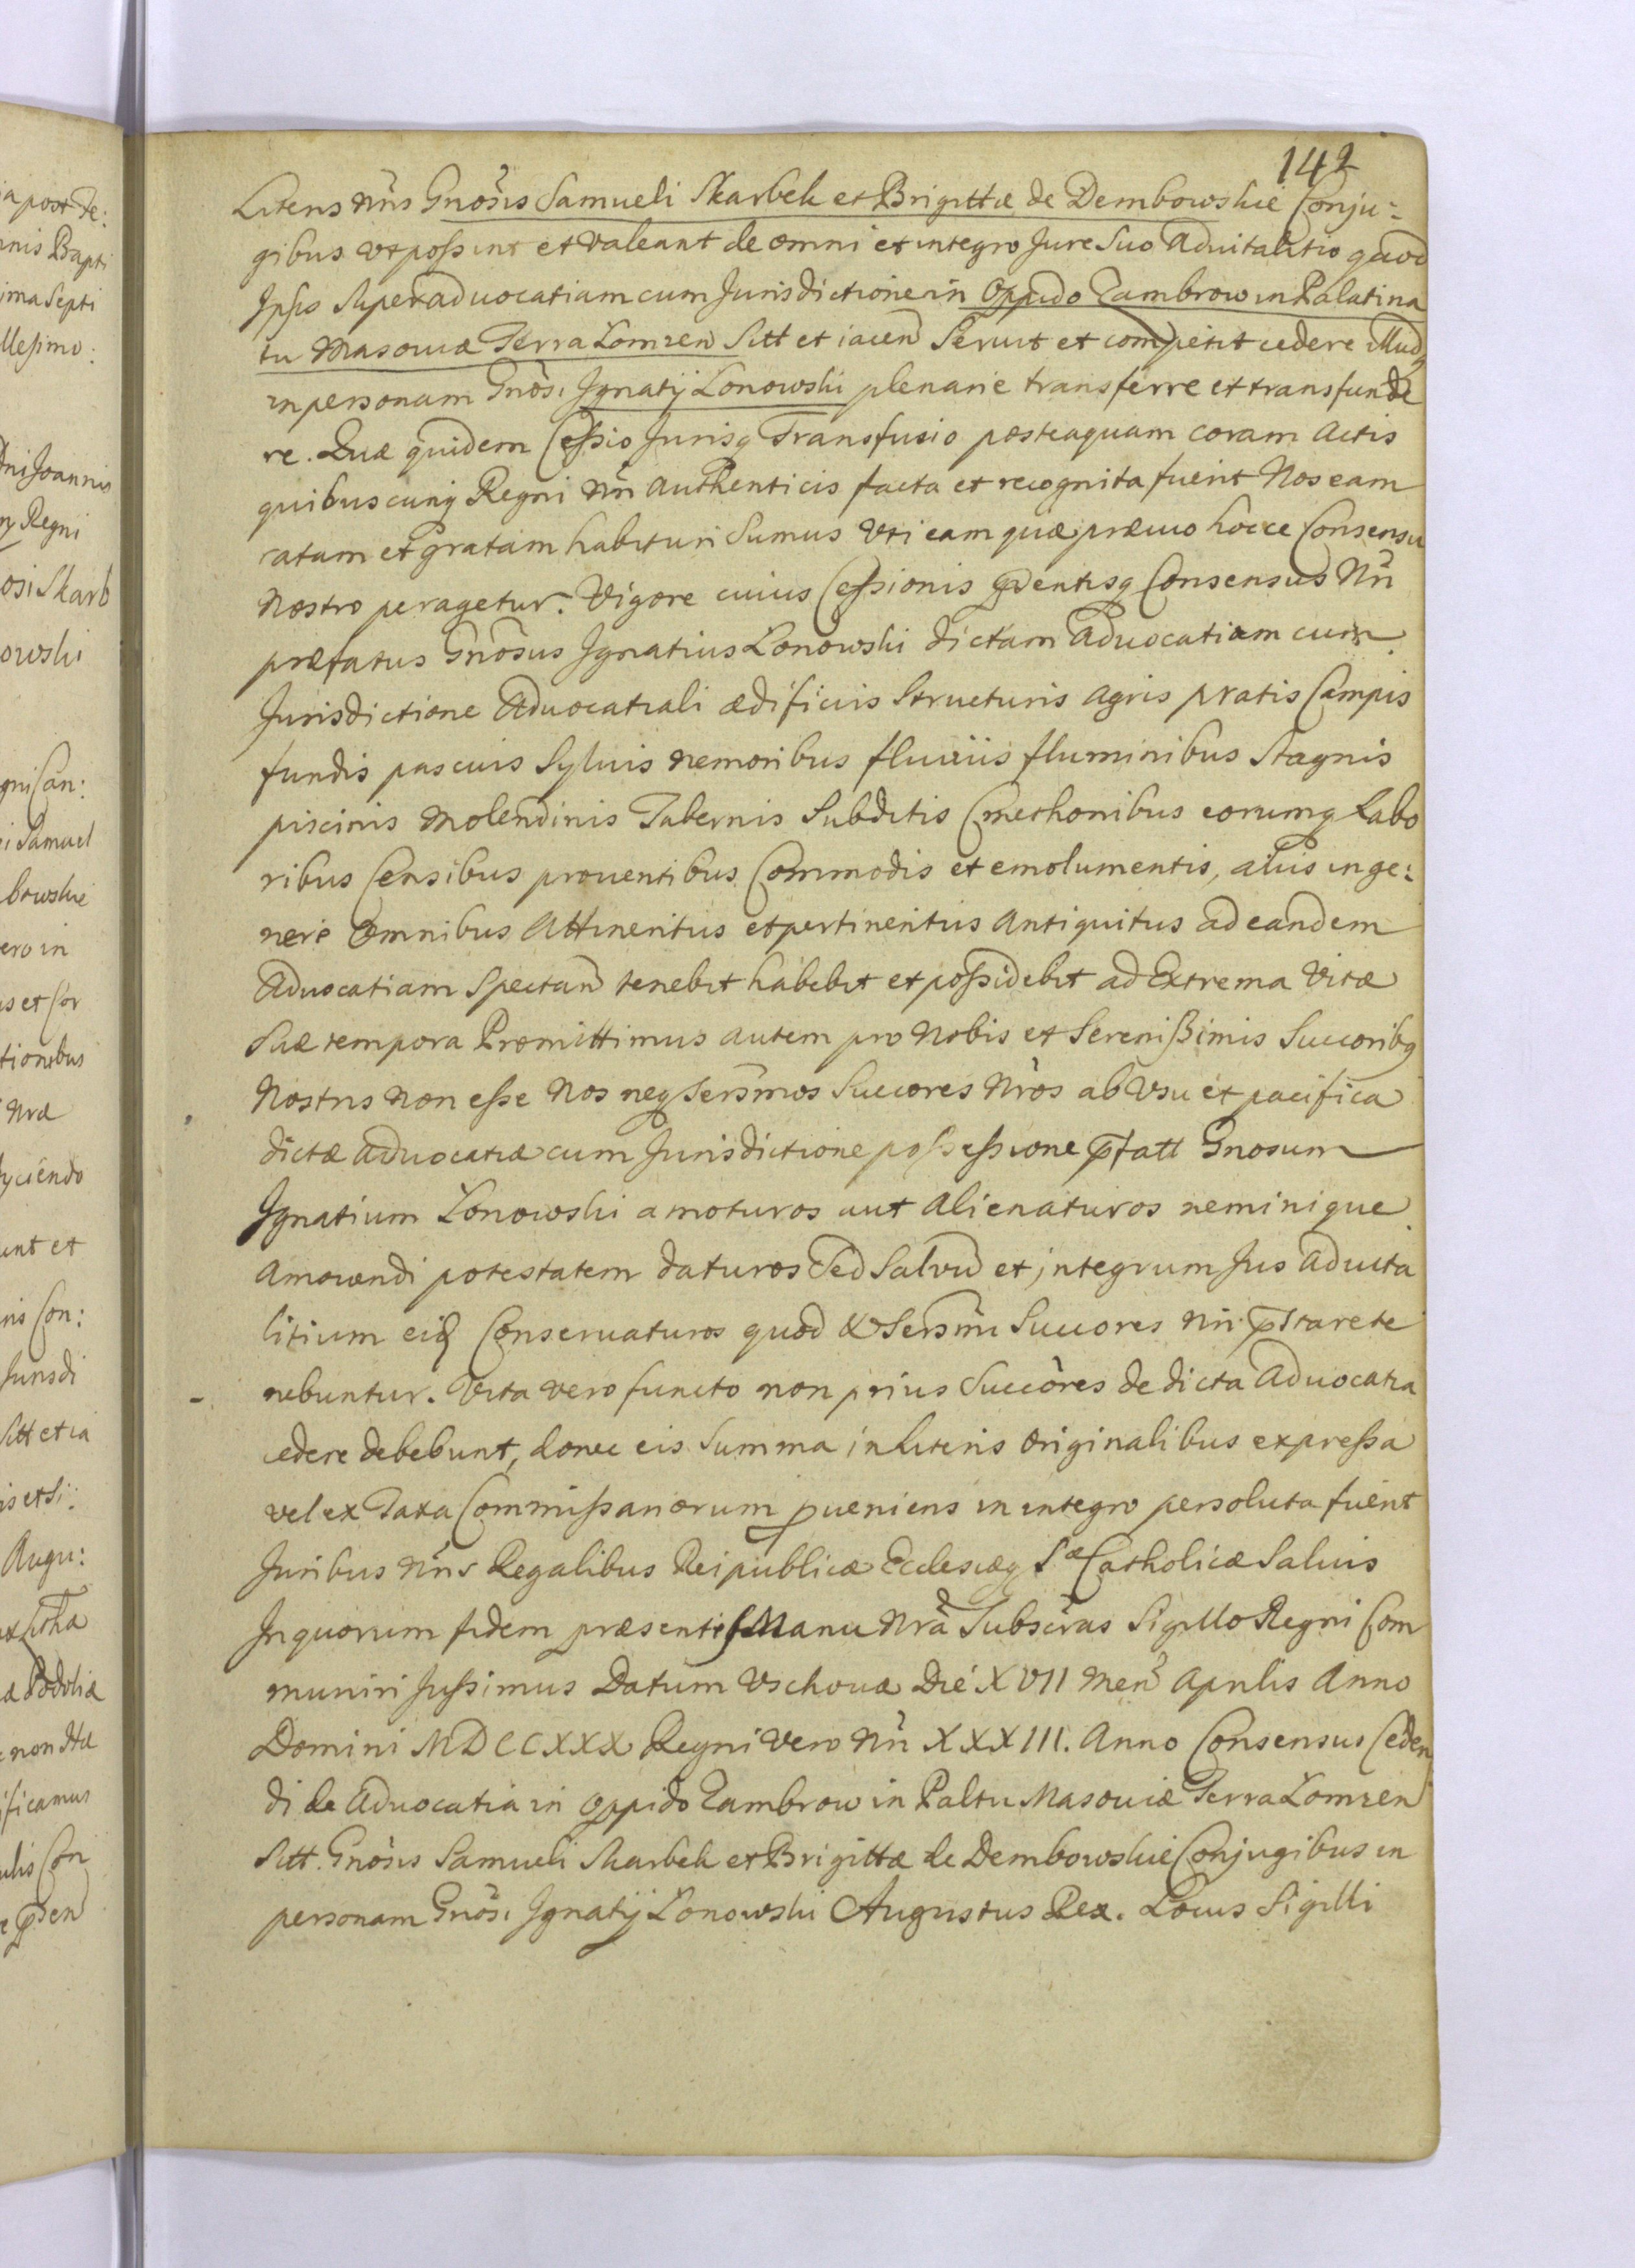 142
Literis Nris Gnosis Samueli Skarbek et Brigittæ de Dembowskie Conju:
gibus vt possint et valeant de omni et integro Jure Suo Aduitalitio quod
Ipsis Super aduocatiam cum Jurisdictione in Oppido Zambrow in Palatina
tu Masouiæ Terra Lomzen Sitt et iacen Seruit et competit cedere illudq
in personam Gnosi Ignatij Lonowski plenarie transferre et transfunde
re. Quæ quidem Cessio Jurisq Transfusio posteaquam coram Actis
quibuscunq Regni Nri Authenticis facta et recognita fuerit Nos eam
ratam et gratam habituri Sumus Vti eam quæ præuio hocce Consensu
Nostro peragetur. Vigore cuius Cessionis prentisq Consensus Nri
præfatus Gnosus Ignatius Lonowski dictam Aduocatiam cum
Jurisdictione Aduocatiali ædificiis Structuris Agris pratis Campis
fundis pascuis Syluis nemoribus fluuiis fluminibus Stagnis
piscinis Molendinis Tabernis Subditis Cmethonibus eorumq Labo
ribus Censibus prouentibus Commodis et emolumentis, aliis in ge:
nere Omnibus Attinentiis et pertinentiis Antiquitus ad eandem
Aduocatiam Spectan tenebit habebit et possidebit ad Extrema Vitæ
Suæ tempora Promittimus autem pro Nobis et Serenissimis Succoribq
Nostris Non esse Nos neq Sersmos Succores Nros ab Vsu et pacifica
dictæ Aduocatiæ cum Jurisdictione possessione pfatt Gnosum
Ignatium Lonowski amoturos aut Alienaturos neminique
Amouendi potestatem daturos Sed Saluu et integrum Jus Aduita
litium eiq Conseruaturos quod & Sersmi Succores Nri pstare te
nebuntur. Vita vero functo non prius Succores de dicta Aduocatia
cedere debebunt, donec eis Summa in Literis Originalibus expressa
vel ex Taxa Commissariorum pueniens in integro persoluta fuerit
Juribus Nris Regalibus Reipublicæ Ecclesiæq Sæ Catholicæ Saluis
In quorum fidem præsentes Manu Nra Subscras Sigillo Regni Com
muniri Jussimus Datum Vschouæ Die XVII Men Aprilis Anno
Domini MDCCXXX Regni Vero Nri XXXIII. Anno Consensus Ceden
di de Aduocatia in Oppido Zambrow in Paltu Masouiæ Terra Lomzen
Sitt. Gnosis Samueli Skarbek et Brigittæ de Dembowskie Conjugibus in
personam Gnosi Ignatij Lonowski Augustus Rex. Locus Sigilli